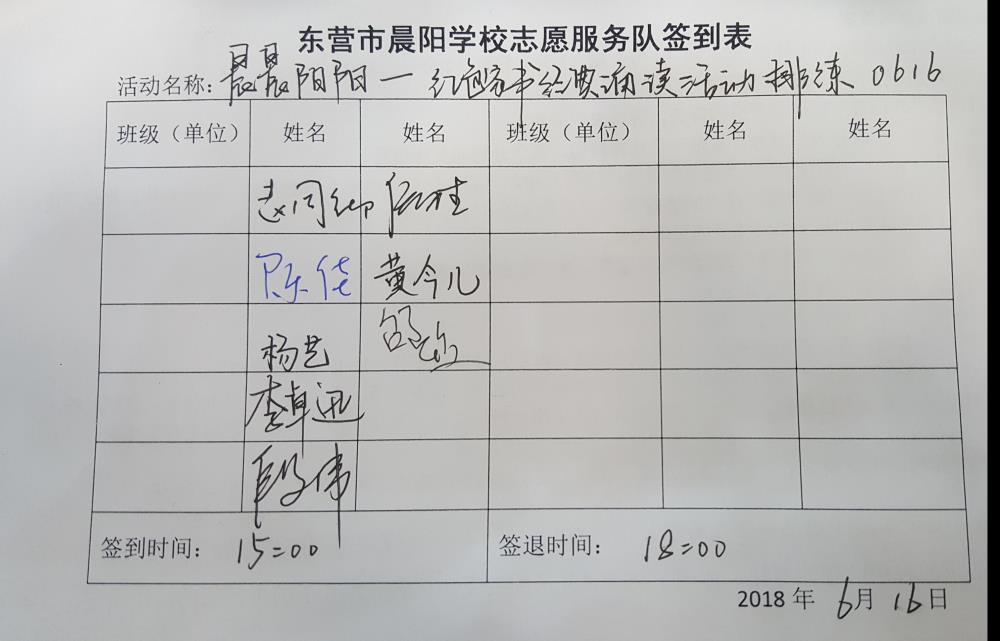 东营市晨阳学校志愿服务队签到表
活动名称：晨晨阳阳一红色家书经典诵读活动排练 0616
班级（单位） 姓名 姓名 班级（单位） 姓名 姓名
陈佳 黄今儿
杨艺
李卓迅
段伟
签到时间： 15:00 签退时间： 18:00
2018 年 6月 16日